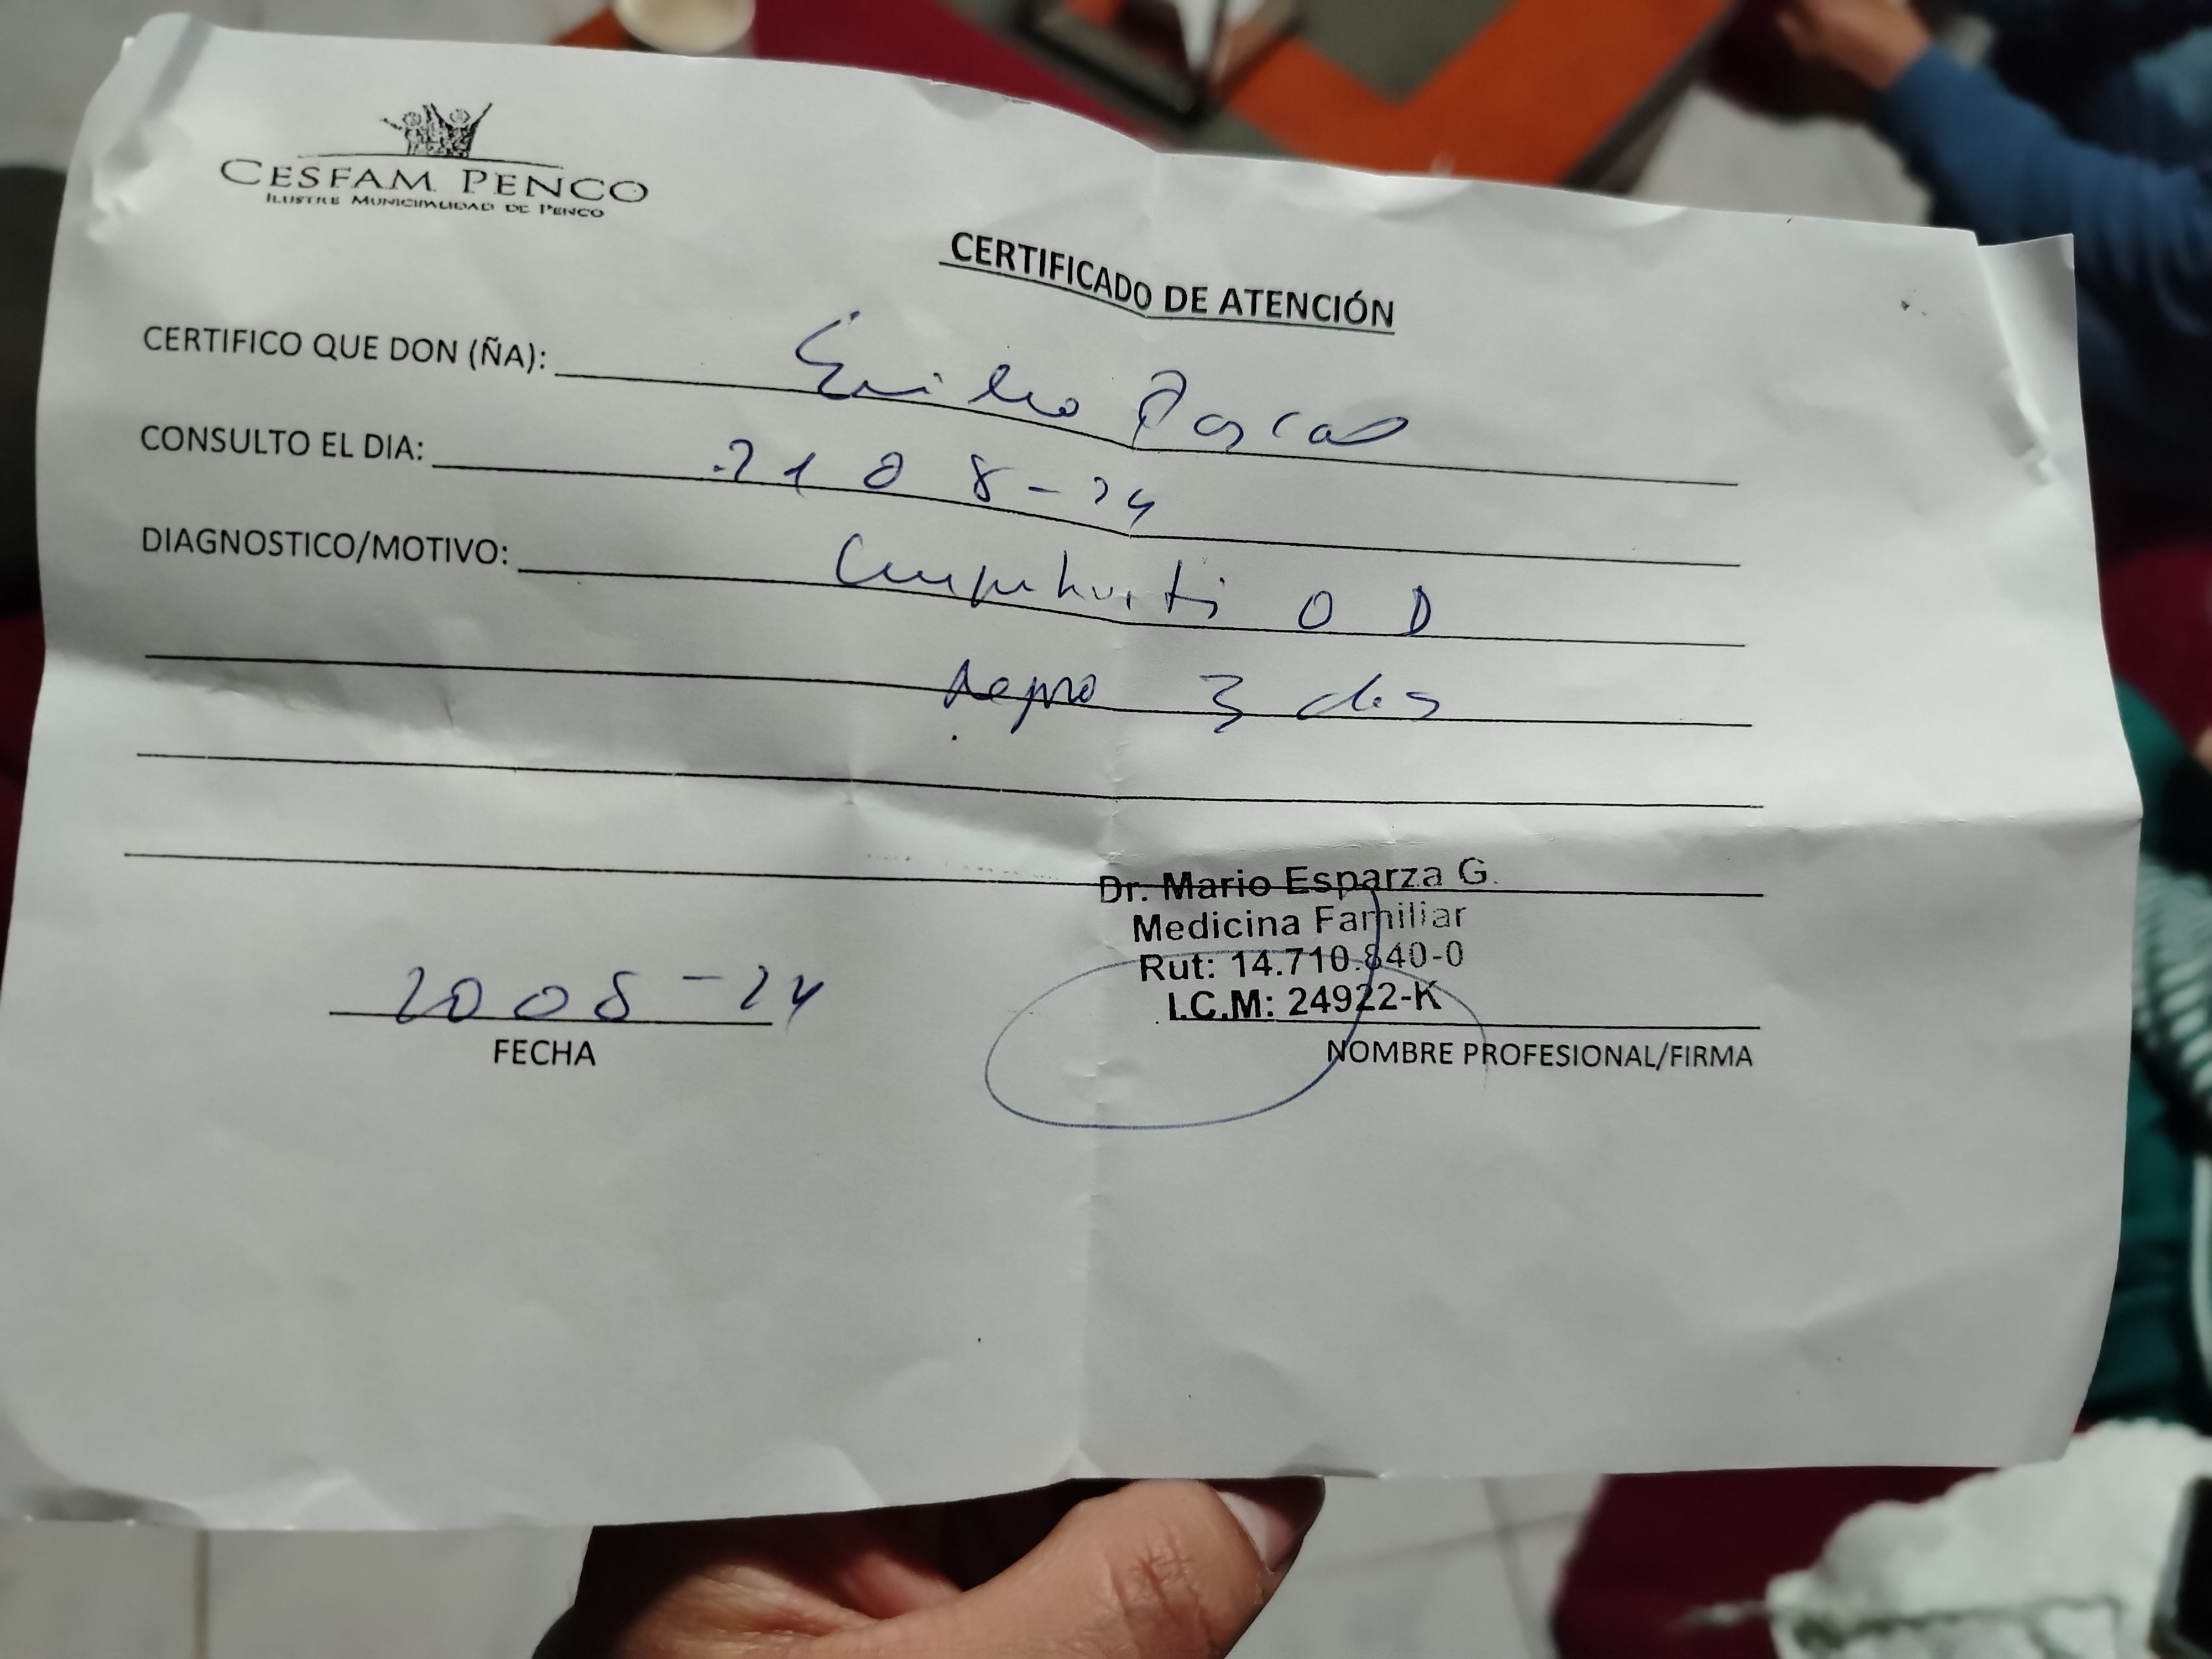 CESFAM PENCO
ILUSTRE MUNICIPALIDAD DE PENCO
CERTIFICADO DE ATENCIÓN
CERTIFICO QUE DON (ÑA): Emilio
CONSULTO EL DIA: 21 08-24
DIAGNOSTICO/MOTIVO: O D
3
Dr. Mario Esparza G.
Medicina Familiar
Rut: 14.710.840-0
I.C.M: 24922-K
2008-24
FECHA
NOMBRE PROFESIONAL/FIRMA